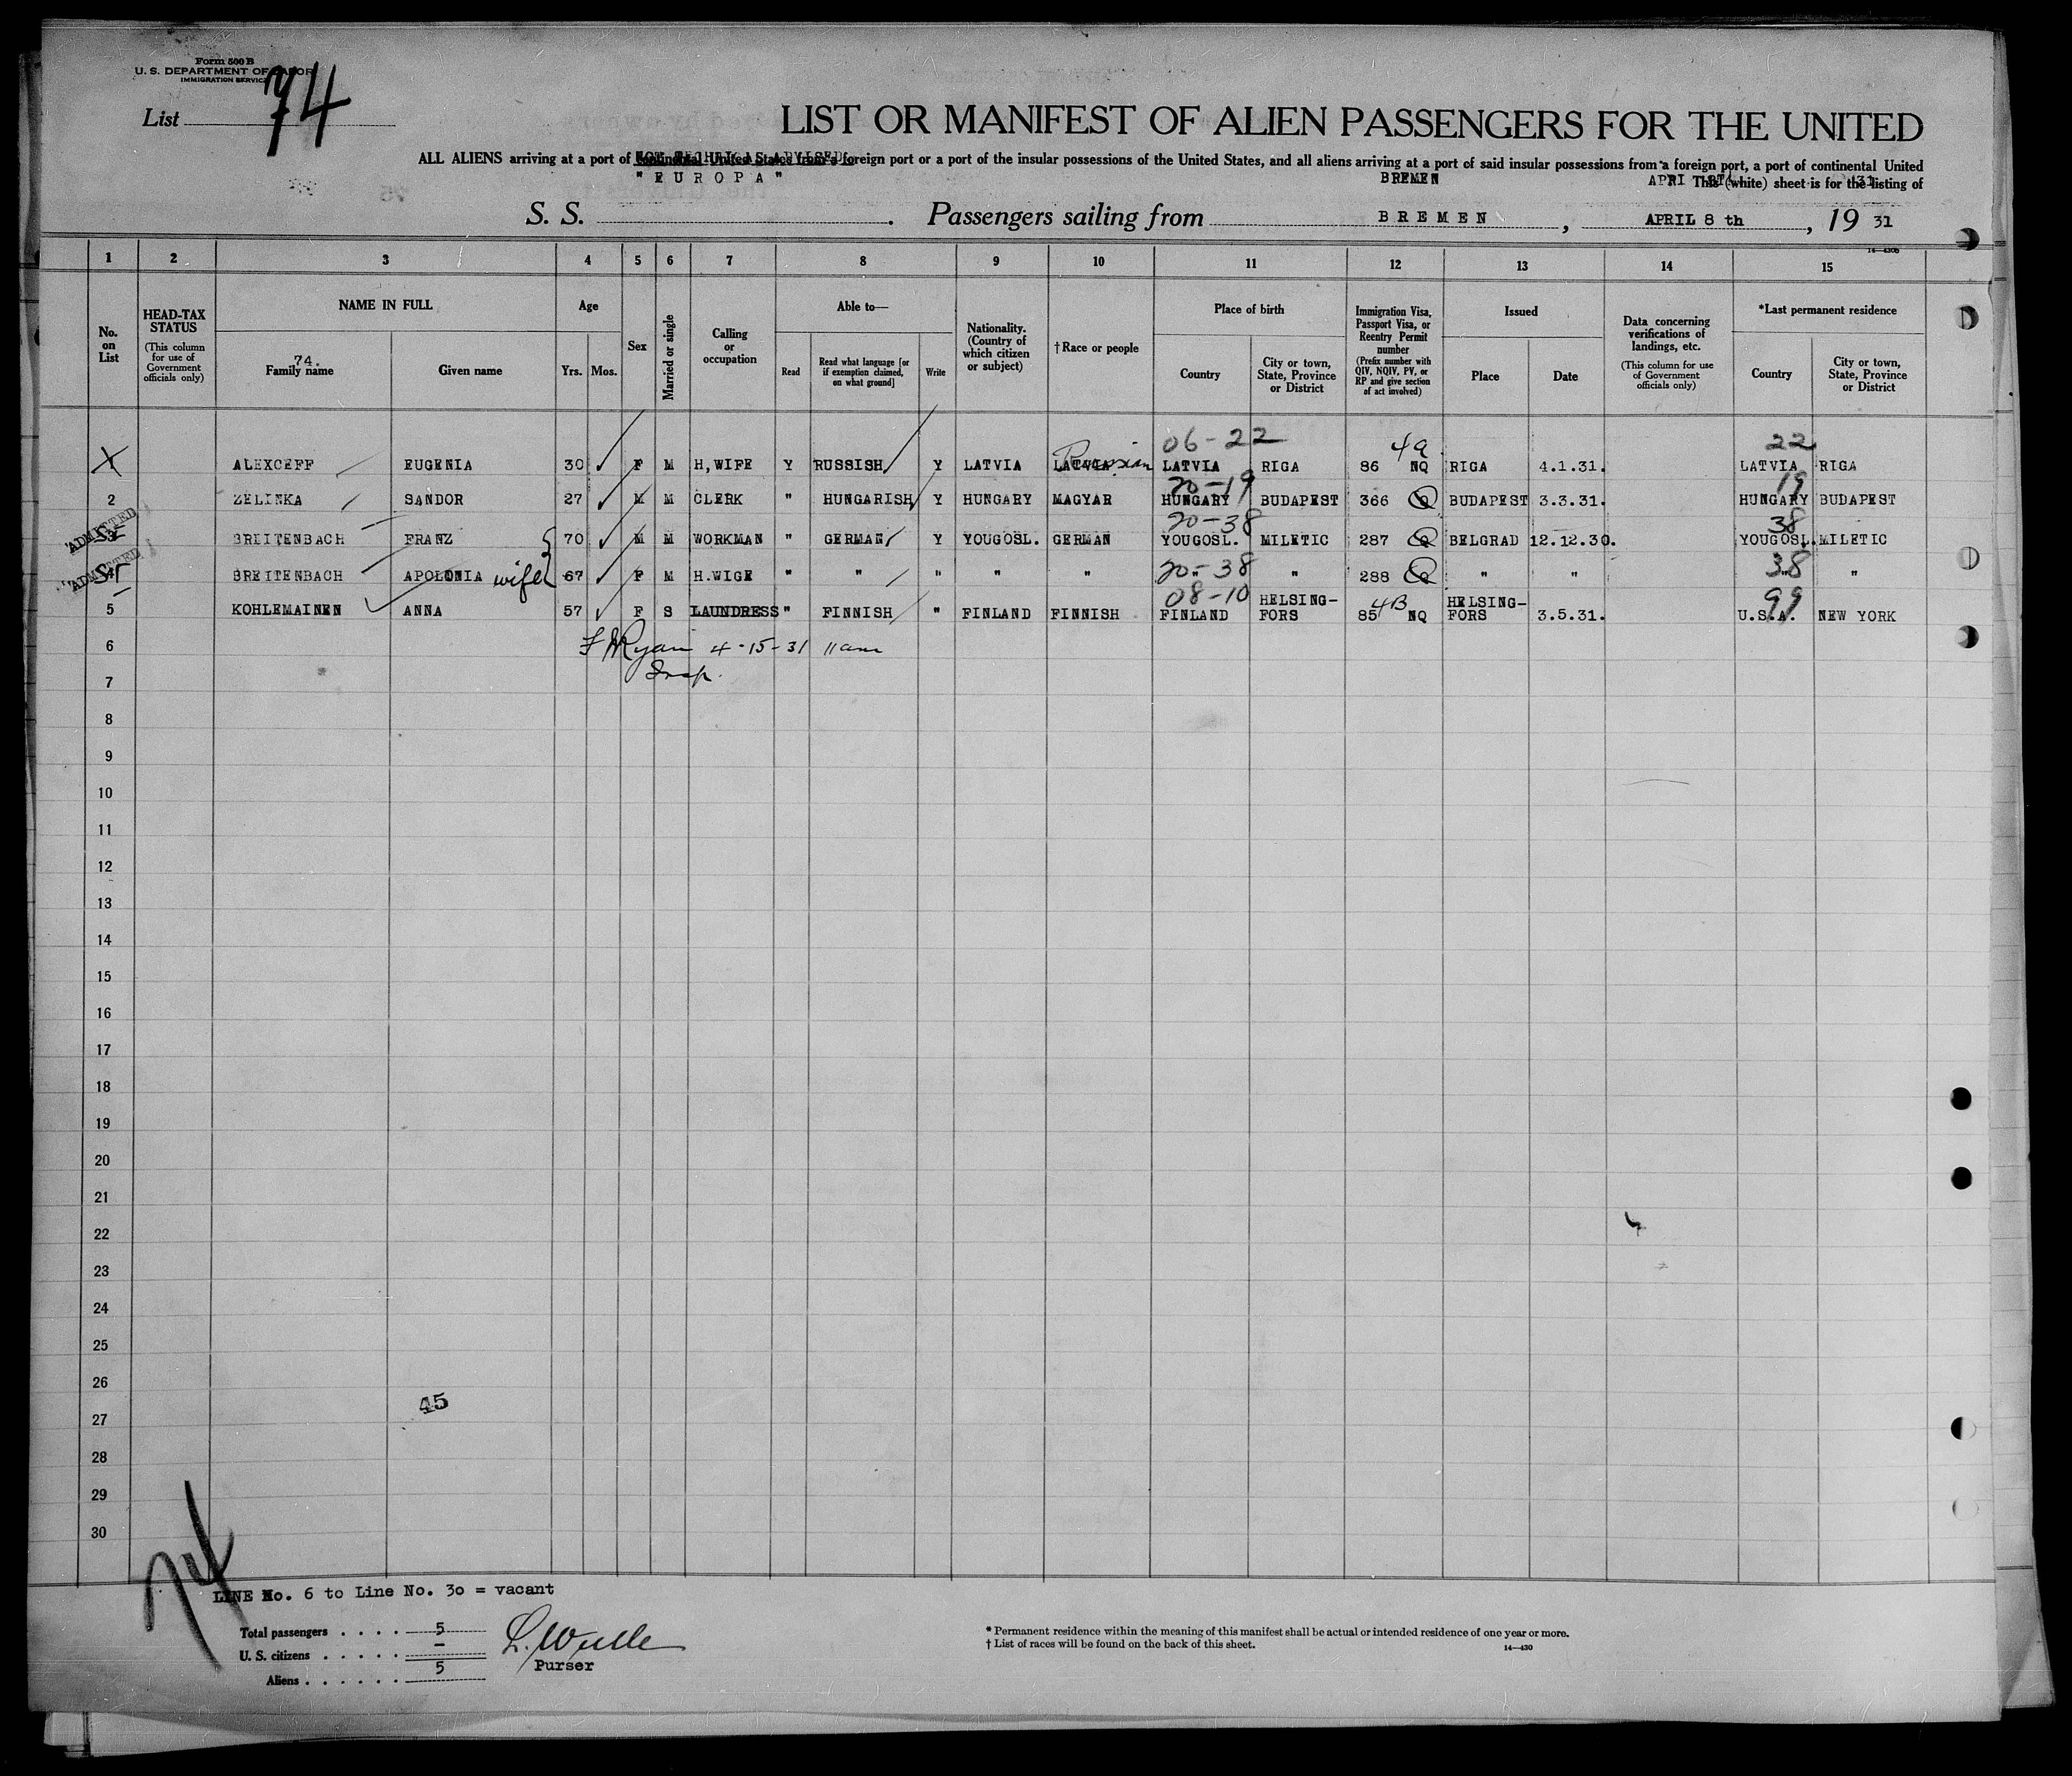 Form 500 B
U. S. DEPARTMENT OF LABOR
IMMIGRATION SERVICE
List 74
LIST OR MANIFEST OF ALIEN PASSENGERS FOR THE UNITED
ALL ALIENS arriving at a port of continental United States from a foreign port or a port of the insular possessions of the United States, and all aliens arriving at a port of said insular possessions from a foreign port, a port of continental United
"EUROPA" BREMEN APRI 31 This (white) sheet is for the listing of
S. S. Passengers sailing from BREMEN, APRIL 8 th, 19 31
14—430b
1 2 3 4 5 6 7 8 9 10 11 12 13 14 15
No. on List
HEAD-TAX STATUS (This column for use of Government officials only)
NAME IN FULL
74.
Family name Given name
Age
Yrs. Mos.
Sex
Married or single
Calling or occupation
Able to—
Read Read what language [or if exemption claimed, on what ground] Write
Nationality. (Country of which citizen or subject)
†Race or people
Place of birth
Country City or town, State, Province or District
Immigration Visa, Passport Visa, or Reentry Permit number (Prefix number with QIV, NQIV, PV, or RP and give section of act involved)
Issued
Place Date
Data concerning verifications of landings, etc. (This column for use of Government officials only)
*Last permanent residence
Country City or town, State, Province or District
06-22 4a 22
X ALEXCEFF EUGENIA 30 F M H,WIFE Y RUSSISH Y LATVIA LATVIA Russian LATVIA RIGA 86 NQ RIGA 4.1.31. LATVIA RIGA
20-19 19
2 ZELINKA SANDOR 27 M M CLERK " HUNGARISH Y HUNGARY MAGYAR HUNGARY BUDAPEST 366 Q BUDAPEST 3.3.31. HUNGARY BUDAPEST
20-38 38
ADMITTED 3 BREITENBACH FRANZ 70 M M WORKMAN " GERMAN Y YOUGOSL. GERMAN YOUGOSL. MILETIC 287 Q BELGRAD 12.12.30. YOUGOSL. MILETIC
20-38 38
ADMITTED 4 BREITENBACH APOLONIA wife 67 F M H.WIGE " " " " " " " 288 Q " " " "
08-10 4B 99
5 KOHLEMAINEN ANNA 57 F S LAUNDRESS " FINNISH " FINLAND FINNISH FINLAND HELSING-FORS 85 NQ HELSING-FORS 3.5.31. U.S.A. NEW YORK
6 F Ryan 4-15-31 11am
7 Insp.
8
9
10
11
12
13
14
15
16
17
18
19
20
21
22
23
24
25
26
45
27
28
29
30
74
LINE No. 6 to Line No. 30 = vacant
Total passengers . . . . 5
U. S. citizens . . . . . —
Aliens . . . . . . 5
Purser
* Permanent residence within the meaning of this manifest shall be actual or intended residence of one year or more.
† List of races will be found on the back of this sheet.
14—430